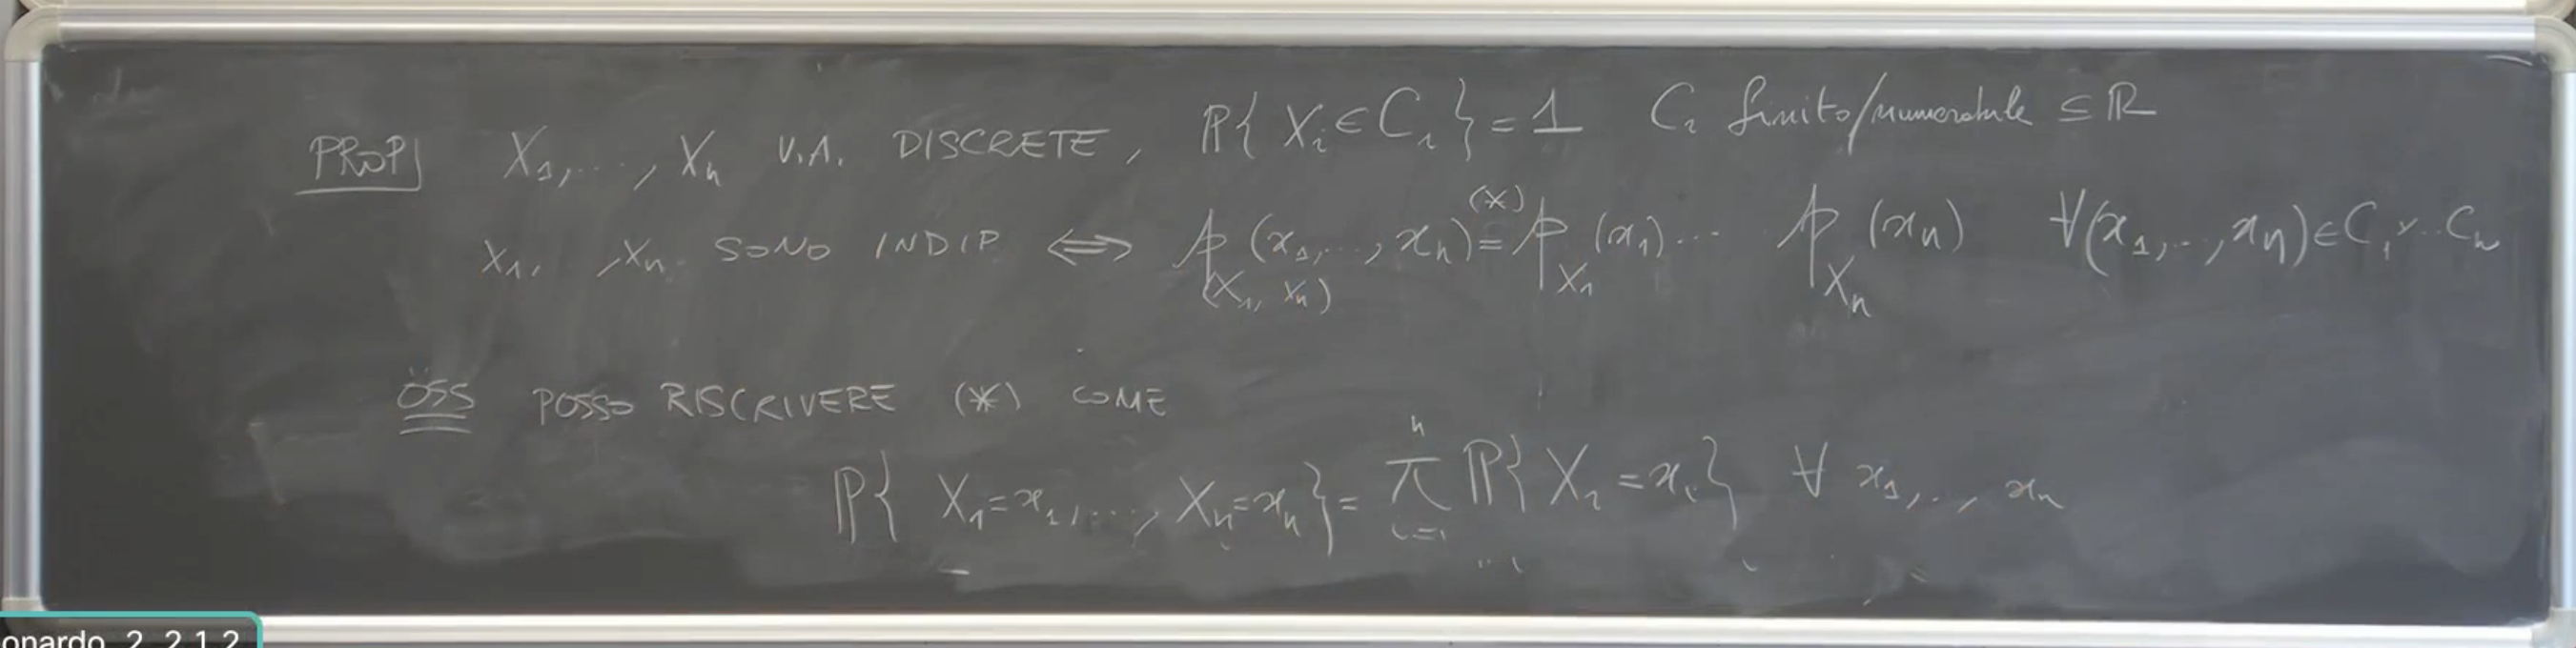 PROP X₁, ..., Xₙ V.A. DISCRETE, ℙ{Xᵢ ∈ Cᵢ} = 1 Cᵢ finito/numerabile ⊆ ℝ
X₁, , Xₙ SONO INDIP ⟺ p_(X₁, Xₙ) (x₁, ..., xₙ) =^(*) p_X₁ (x₁) ... p_Xₙ (xₙ) ∀(x₁, .., xₙ) ∈ C₁×..Cₙ
OSS POSSO RISCRIVERE (*) COME
ℙ{X₁=x₁, ..., Xₙ=xₙ} = π_{i=1}^{n} ℙ{Xᵢ=xᵢ} ∀ x₁, .., xₙ
onardo_2_2.1.2